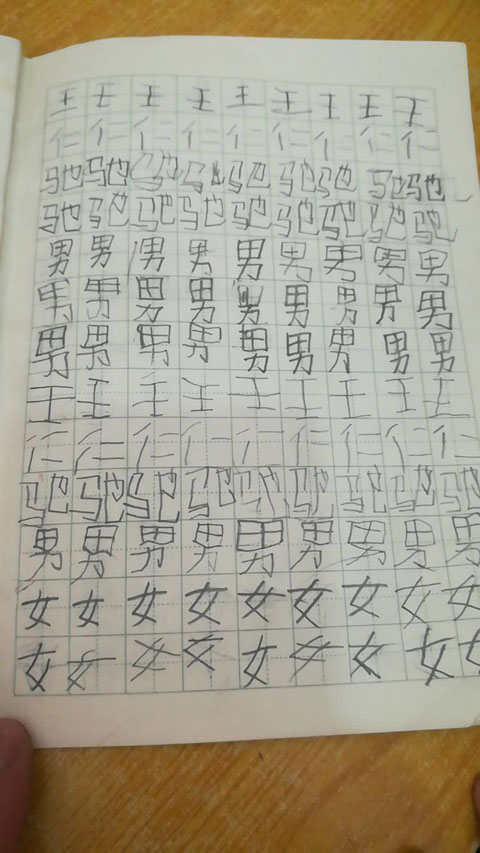 王王王王王王王王王
仁仁仁仁仁仁仁仁仁
驰驰驰驰驰驰驰驰驰
驰驰驰驰驰驰驰驰驰
男男男男男男男男男
男男男男男男男男男
男男男男男男男男男
王王王王王王王王王
仁仁仁仁仁仁仁仁仁
驰驰驰驰驰驰驰驰驰
男男男男男男男男男
女女女女女女女女女
女女女女女女女女女